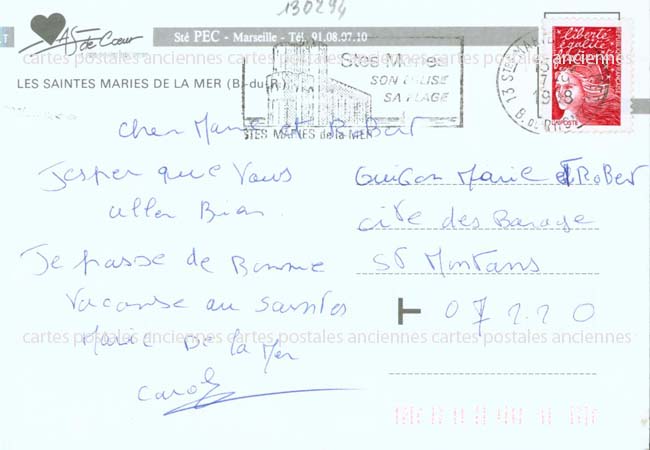 130294
As de Cœur
Sté PEC - Marseille - Tél. 91.08.07.10
cartes postales anciennes cartes postales anciennes cartes postales anciennes
LES SAINTES MARIES DE LA MER (B.-du-R.)
Stes Maries
SON EGLISE
SA PLAGE
STES MARIES de la MER
13 STES MARIES
B. DU RH
liberté
égalité
LA POSTE
Cher Marie et Robert
Jesper que Vous
aller Bien
Je passe de Bonne
Vacanse au Saintes
Marie De la Mer
Carole
Guigon Marie et Robert
cite des Barage
St Montans
T 07220
cartes postales anciennes cartes postales anciennes cartes postales anciennes